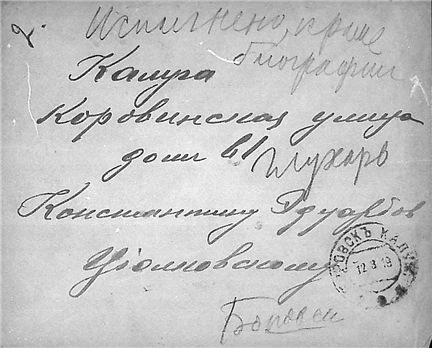 2.
Исполнено, кроме
биографии
Калуга
Коровинская улица
домъ 61
Глухарь
Константину Эдуардов
Ціолковскому
РОВСКЪ КАЛУЖ
12 8 19
Боровск